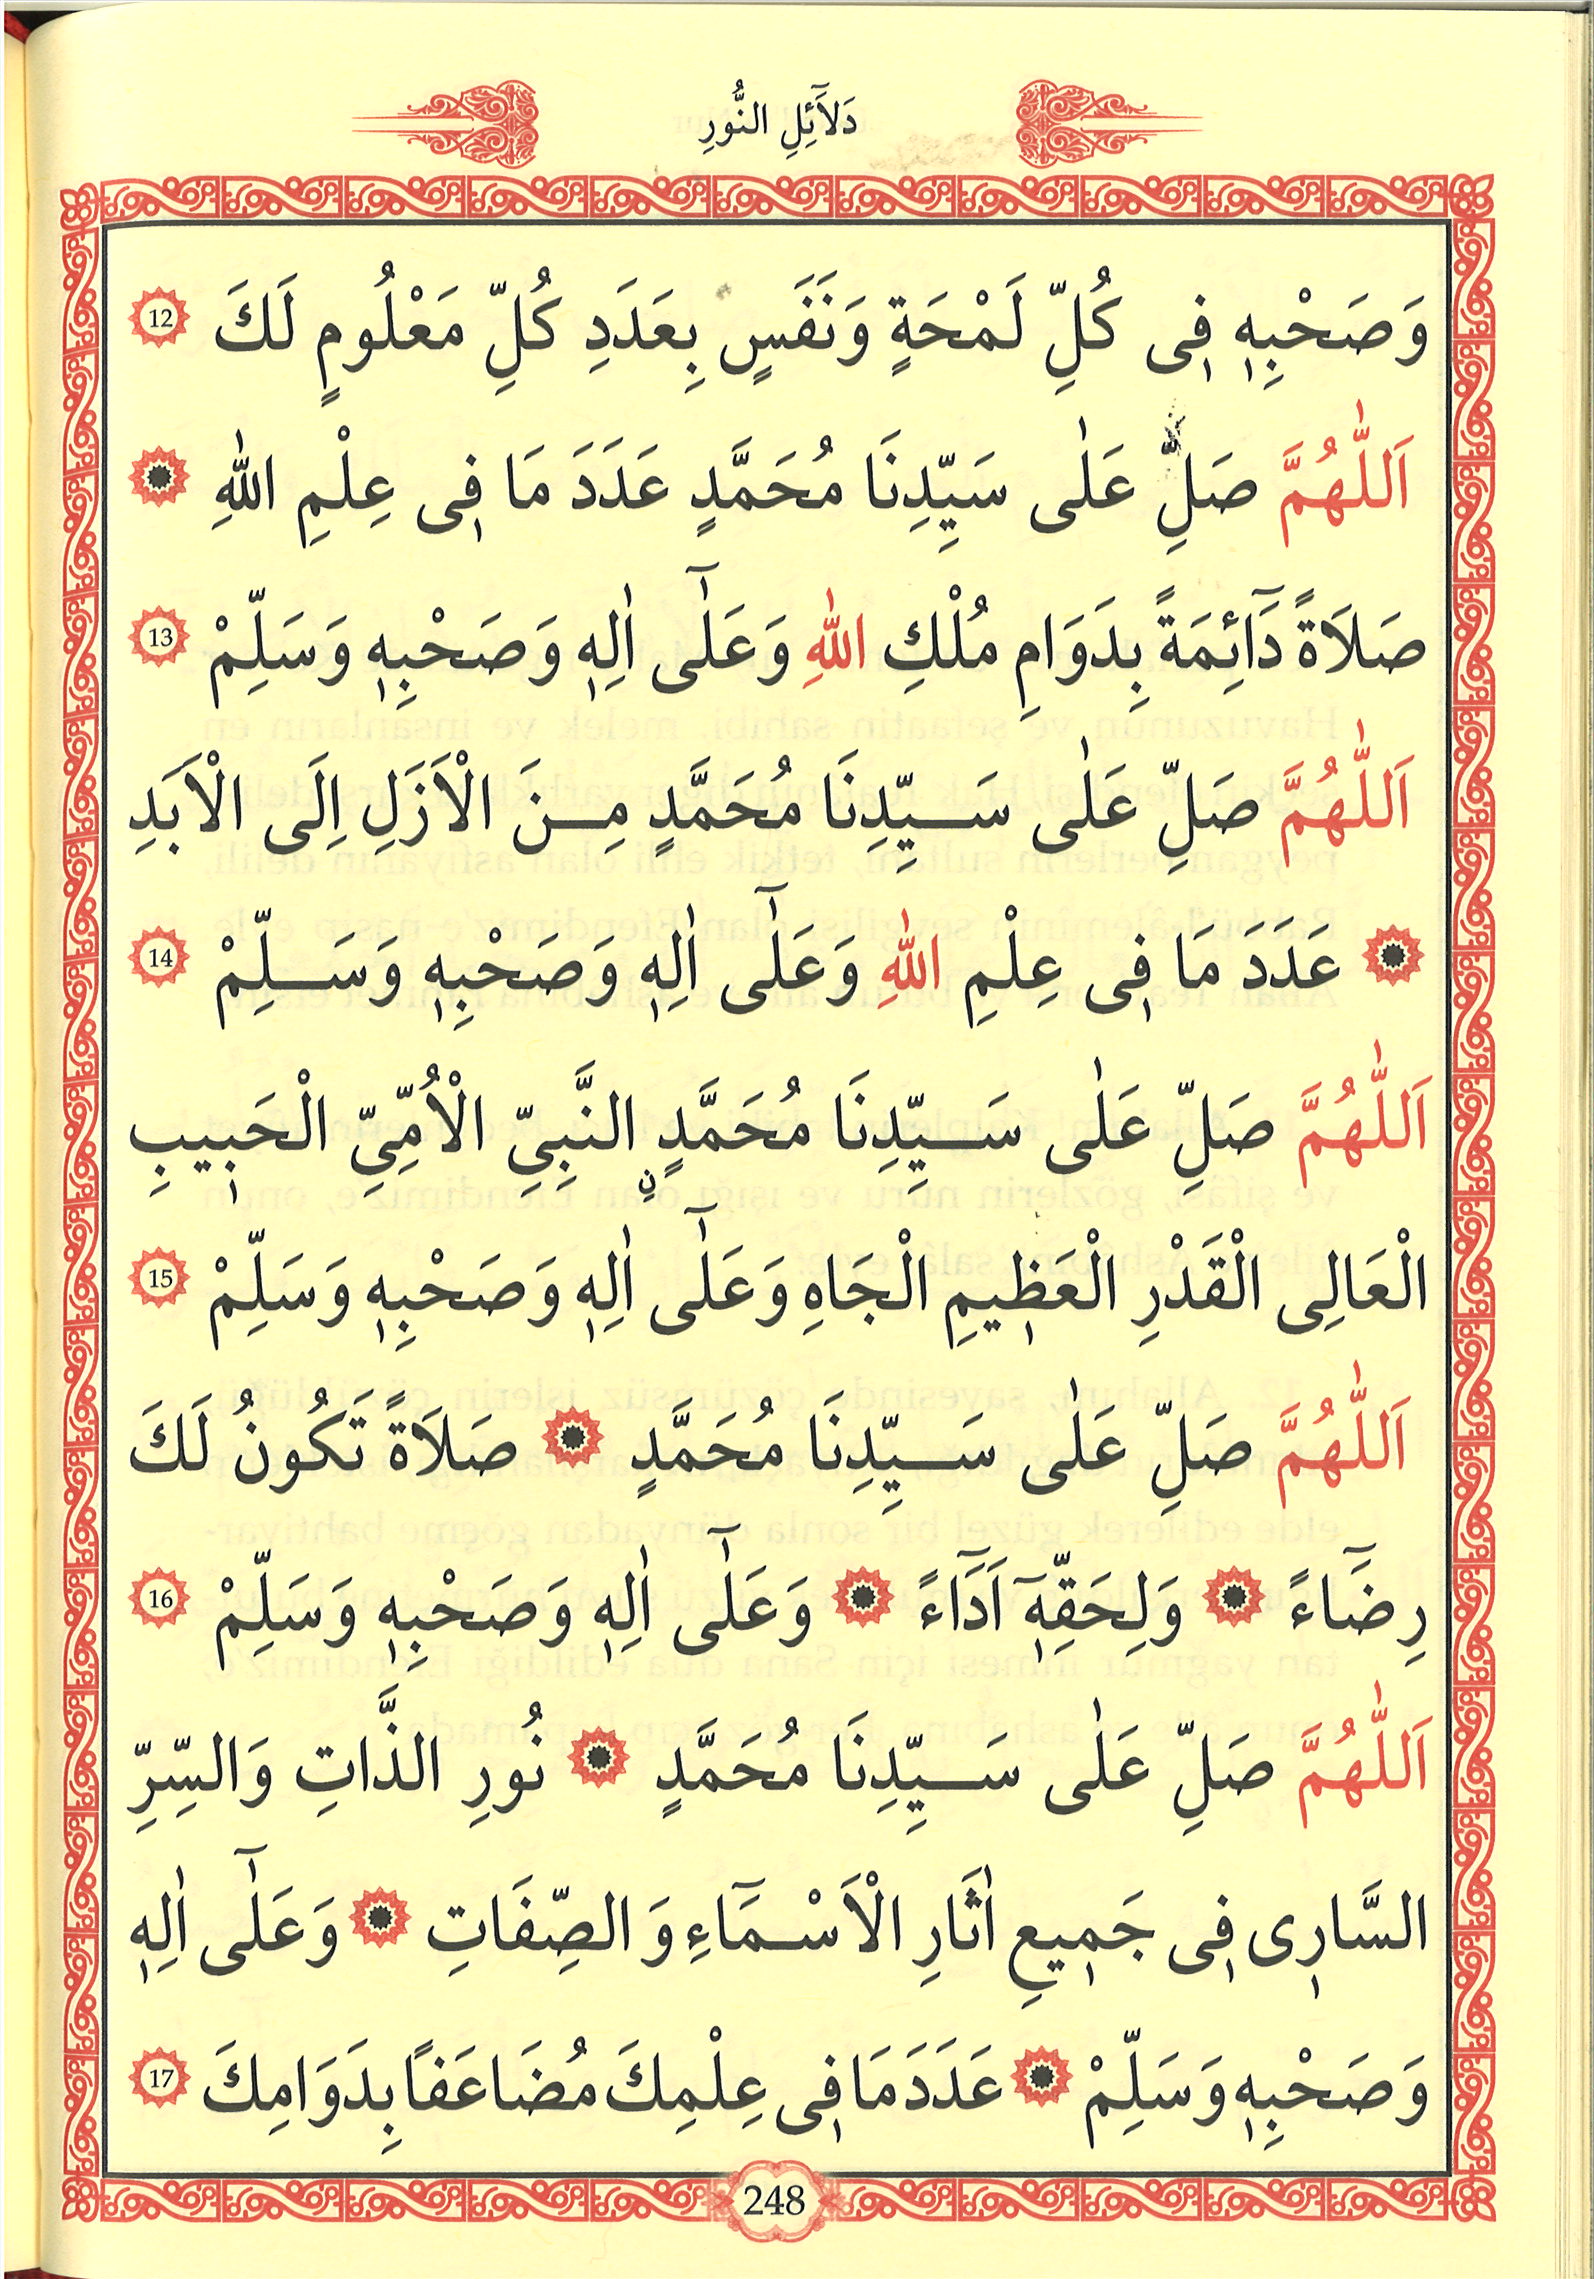 دَلَآئِلِ النُّورِ
وَصَحْبِهٖ فٖى كُلِّ لَمْحَةٍ وَنَفَسٍ بِعَدَدِ كُلِّ مَعْلُومٍ لَكَ 12
اَللّٰهُمَّ صَلِّ عَلٰى سَيِّدِنَا مُحَمَّدٍ عَدَدَ مَا فٖى عِلْمِ اللّٰهِ
صَلَاةً دَآئِمَةً بِدَوَامِ مُلْكِ اللّٰهِ وَعَلٰٓى اٰلِهٖ وَصَحْبِهٖ وَسَلِّمْ 13
اَللّٰهُمَّ صَلِّ عَلٰى سَيِّدِنَا مُحَمَّدٍ مِنَ الْاَزَلِ اِلَى الْاَبَدِ
عَدَدَ مَا فٖى عِلْمِ اللّٰهِ وَعَلٰٓى اٰلِهٖ وَصَحْبِهٖ وَسَلِّمْ 14
اَللّٰهُمَّ صَلِّ عَلٰى سَيِّدِنَا مُحَمَّدٍ نِ النَّبِيِّ الْاُمِّيِّ الْحَبٖيبِ
الْعَالِى الْقَدْرِ الْعَظٖيمِ الْجَاهِ وَعَلٰٓى اٰلِهٖ وَصَحْبِهٖ وَسَلِّمْ 15
اَللّٰهُمَّ صَلِّ عَلٰى سَيِّدِنَا مُحَمَّدٍ صَلَاةً تَكُونُ لَكَ
رِضَٓاءً وَلِحَقِّهٖٓ اَدَٓاءً وَعَلٰٓى اٰلِهٖ وَصَحْبِهٖ وَسَلِّمْ 16
اَللّٰهُمَّ صَلِّ عَلٰى سَيِّدِنَا مُحَمَّدٍ نُورِ الذَّاتِ وَالسِّرِّ
السَّارٖى فٖى جَمٖيعِ اٰثَارِ الْاَسْمَٓاءِ وَ الصِّفَاتِ وَعَلٰٓى اٰلِهٖ
وَصَحْبِهٖ وَسَلِّمْ عَدَدَ مَا فٖى عِلْمِكَ مُضَاعَفًا بِدَوَامِكَ 17
248